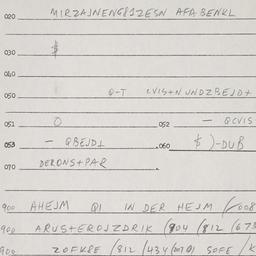 020 MIRZAJNENG8IZESN AFABENKL
030 $
040
050 Q-T LVIS+N UNDZBEJD+
051 O 052 - QCVIS
053 - QBEJD1 .060 $ )-DUB
070 DERONS+PAR
900 AHEJM QI IN DER HEJM /-008
900 ARUS+EROJZDRIK /904 /812 /678
900 ZOFKRE /812 /434 SOFE /K